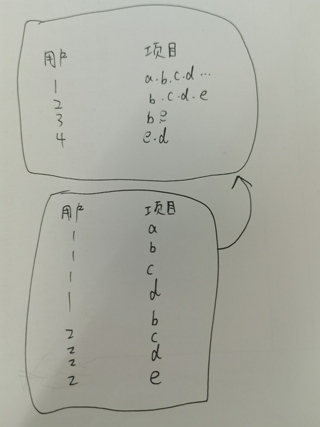 用户 项目
1 a.b.c.d...
2 b.c.d.e
3 b e
4 e.d
用户 项目
1 a
1 b
1 c
1 d
2 b
2 c
2 d
2 e